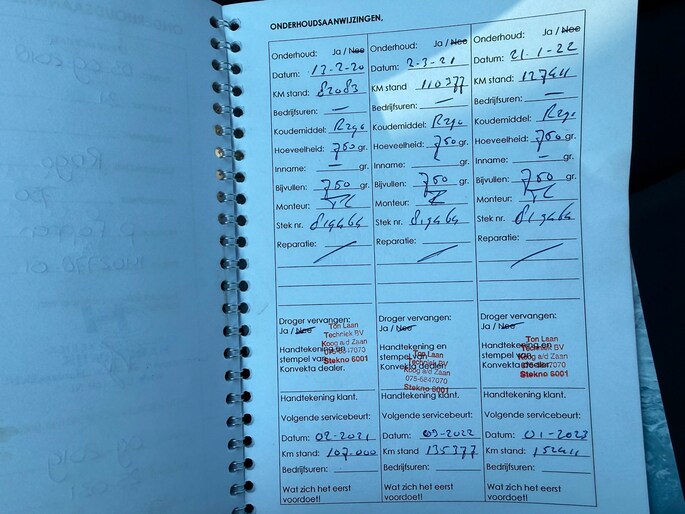 ONDERHOUDSAANWIJZINGEN,
Onderhoud: Ja / Nee
Datum: 13-2-20
KM stand: 82083
Bedrijfsuren: —
Koudemiddel:
Hoeveelheid: 750 gr.
Inname: — gr.
Bijvullen: 750 gr.
Monteur:
Stek nr.
Reparatie:
Droger vervangen:
Ja / Nee
Handtekening en
stempel van
Konvekta dealer.
Ton Laan
Techniek BV
Koog a/d Zaan
075-6847070
Stekno 6001
Handtekening klant.
Volgende servicebeurt:
Datum: 02-2021
Km stand: 107.000
Bedrijfsuren:
Wat zich het eerst
voordoet!
Onderhoud: Ja / Nee
Datum: 2-3-21
KM stand 110377
Bedrijfsuren: —
Koudemiddel:
Hoeveelheid: 750 gr.
Inname: gr.
Bijvullen: 750 gr.
Monteur:
Stek nr.
Reparatie:
Droger vervangen:
Ja / Nee
Handtekening en
stempel van
Konvekta dealer.
Ton Laan
Techniek BV
Koog a/d Zaan
075-6847070
Stekno 6001
Handtekening klant.
Volgende servicebeurt:
Datum: 03-2022
Km stand 135377
Bedrijfsuren:
Wat zich het eerst
voordoet!
Onderhoud: Ja / Nee
Datum: 21-1-22
KM stand: 127911
Bedrijfsuren: —
Koudemiddel:
Hoeveelheid: 750 gr.
Inname: — gr.
Bijvullen: 750 gr.
Monteur:
Stek nr.
Reparatie:
Droger vervangen:
Ja / Nee
Handtekening en
stempel van
Konvekta dealer.
Ton Laan
Techniek BV
Koog a/d Zaan
075-6847070
Stekno 6001
Handtekening klant.
Volgende servicebeurt:
Datum: 01-2023
Km stand: 152911
Bedrijfsuren:
Wat zich het eerst
voordoet!